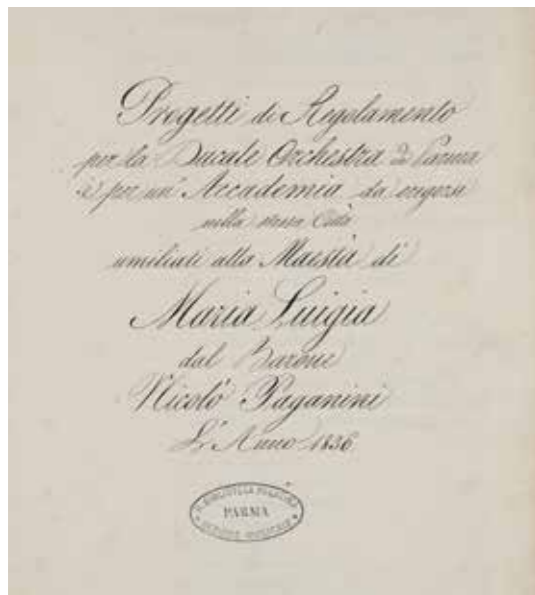 Progetti di Regolamento
per la Ducale Orchestra di Parma
e per un' Accademia da erigersi
nella stessa Città
umiliati alla Maestà di
Maria Luigia
dal Barone
Nicolò Paganini
L'Anno 1836
R. BIBLIOTECA PALATINA
PARMA
SEZIONE MUSICALE